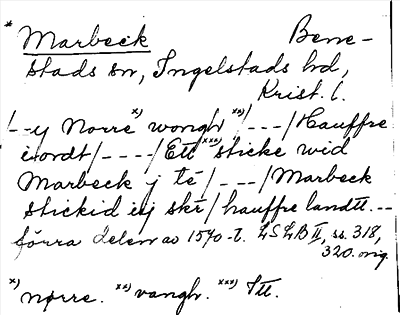 * Marbeck Bene-
stads sn, Ingelstads hd,
Krist. l.
/--y Norre x) wongh xx) /---/ Hauffre
i ordt /----/ Ett xxx) sticke wid
Marbeck j té /---/ Marbeck
stickid eij skr/ hauffre landtt.--
förra delen av 1570-t. LSLB II, ss. 318,
320. orig.
x) nørre. xx) vangh. xxx) Itt.